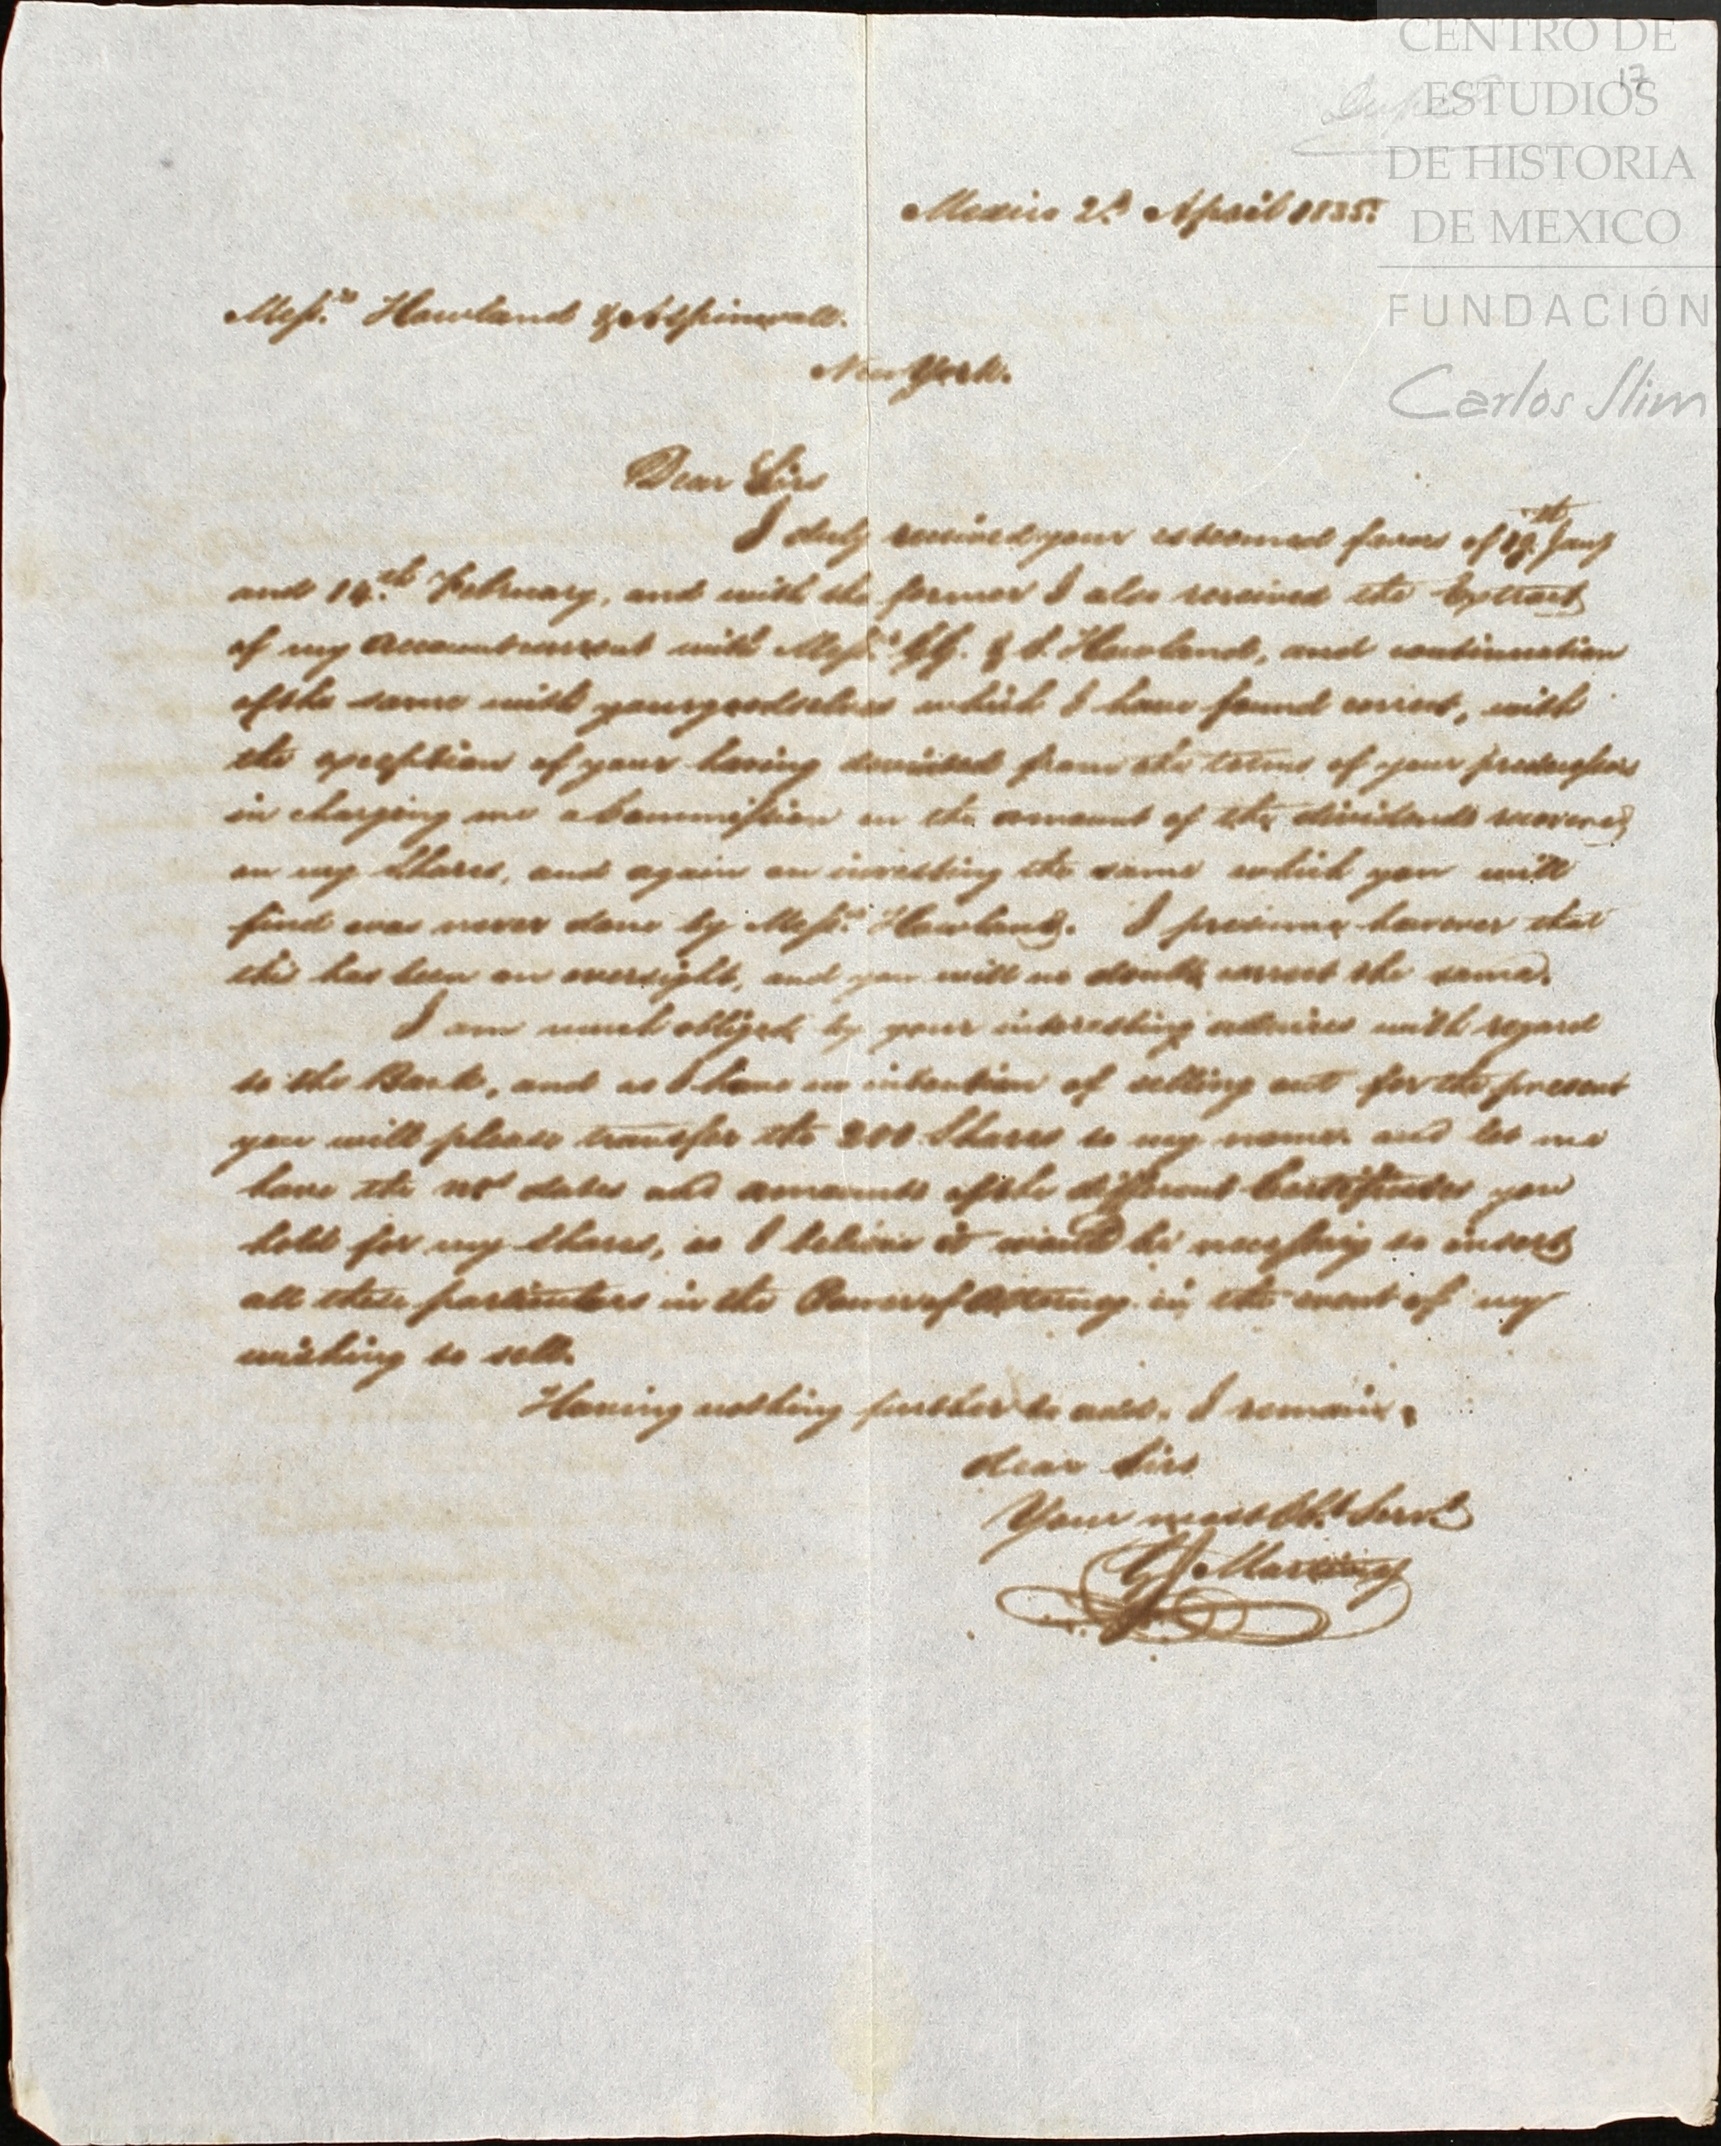 CENTRO DE
ESTUDIOS
DE HISTORIA
DE MEXICO
FUNDACIÓN
Carlos Slim
17
Mexico 2d April 1835.
Messrs Howland & Aspinwall.
New York.
Dear Sirs
I duly received your esteemed favors of th Jany
and 14th February, and with the former I also received the Extract
of my account current with Messrs G.G. & S. Howland, and continuation
of the same with your goodselves which I have found correct, with
the exception of your having deviated from the terms of your predecessors
in charging me a Commission on the amount of the dividends recovered
on my Shares, and again on investing the same which you will
find was never done by Messrs Howland. I presume however that
this has been an oversight, and you will no doubt correct the same.
I am much obliged by your interesting advices with regard
to the Bank, and as I have no intention of selling out for the present
you will please transfer the 200 Shares to my name and let me
have the nos dates and amounts of the different Certificates you
hold for my Shares, as I believe it would be necessary to insert
all these particulars in the Power of Attorney in the event of my
wishing to sell.
Having nothing further to add, I remain,
dear Sirs
Your most Obt Servt